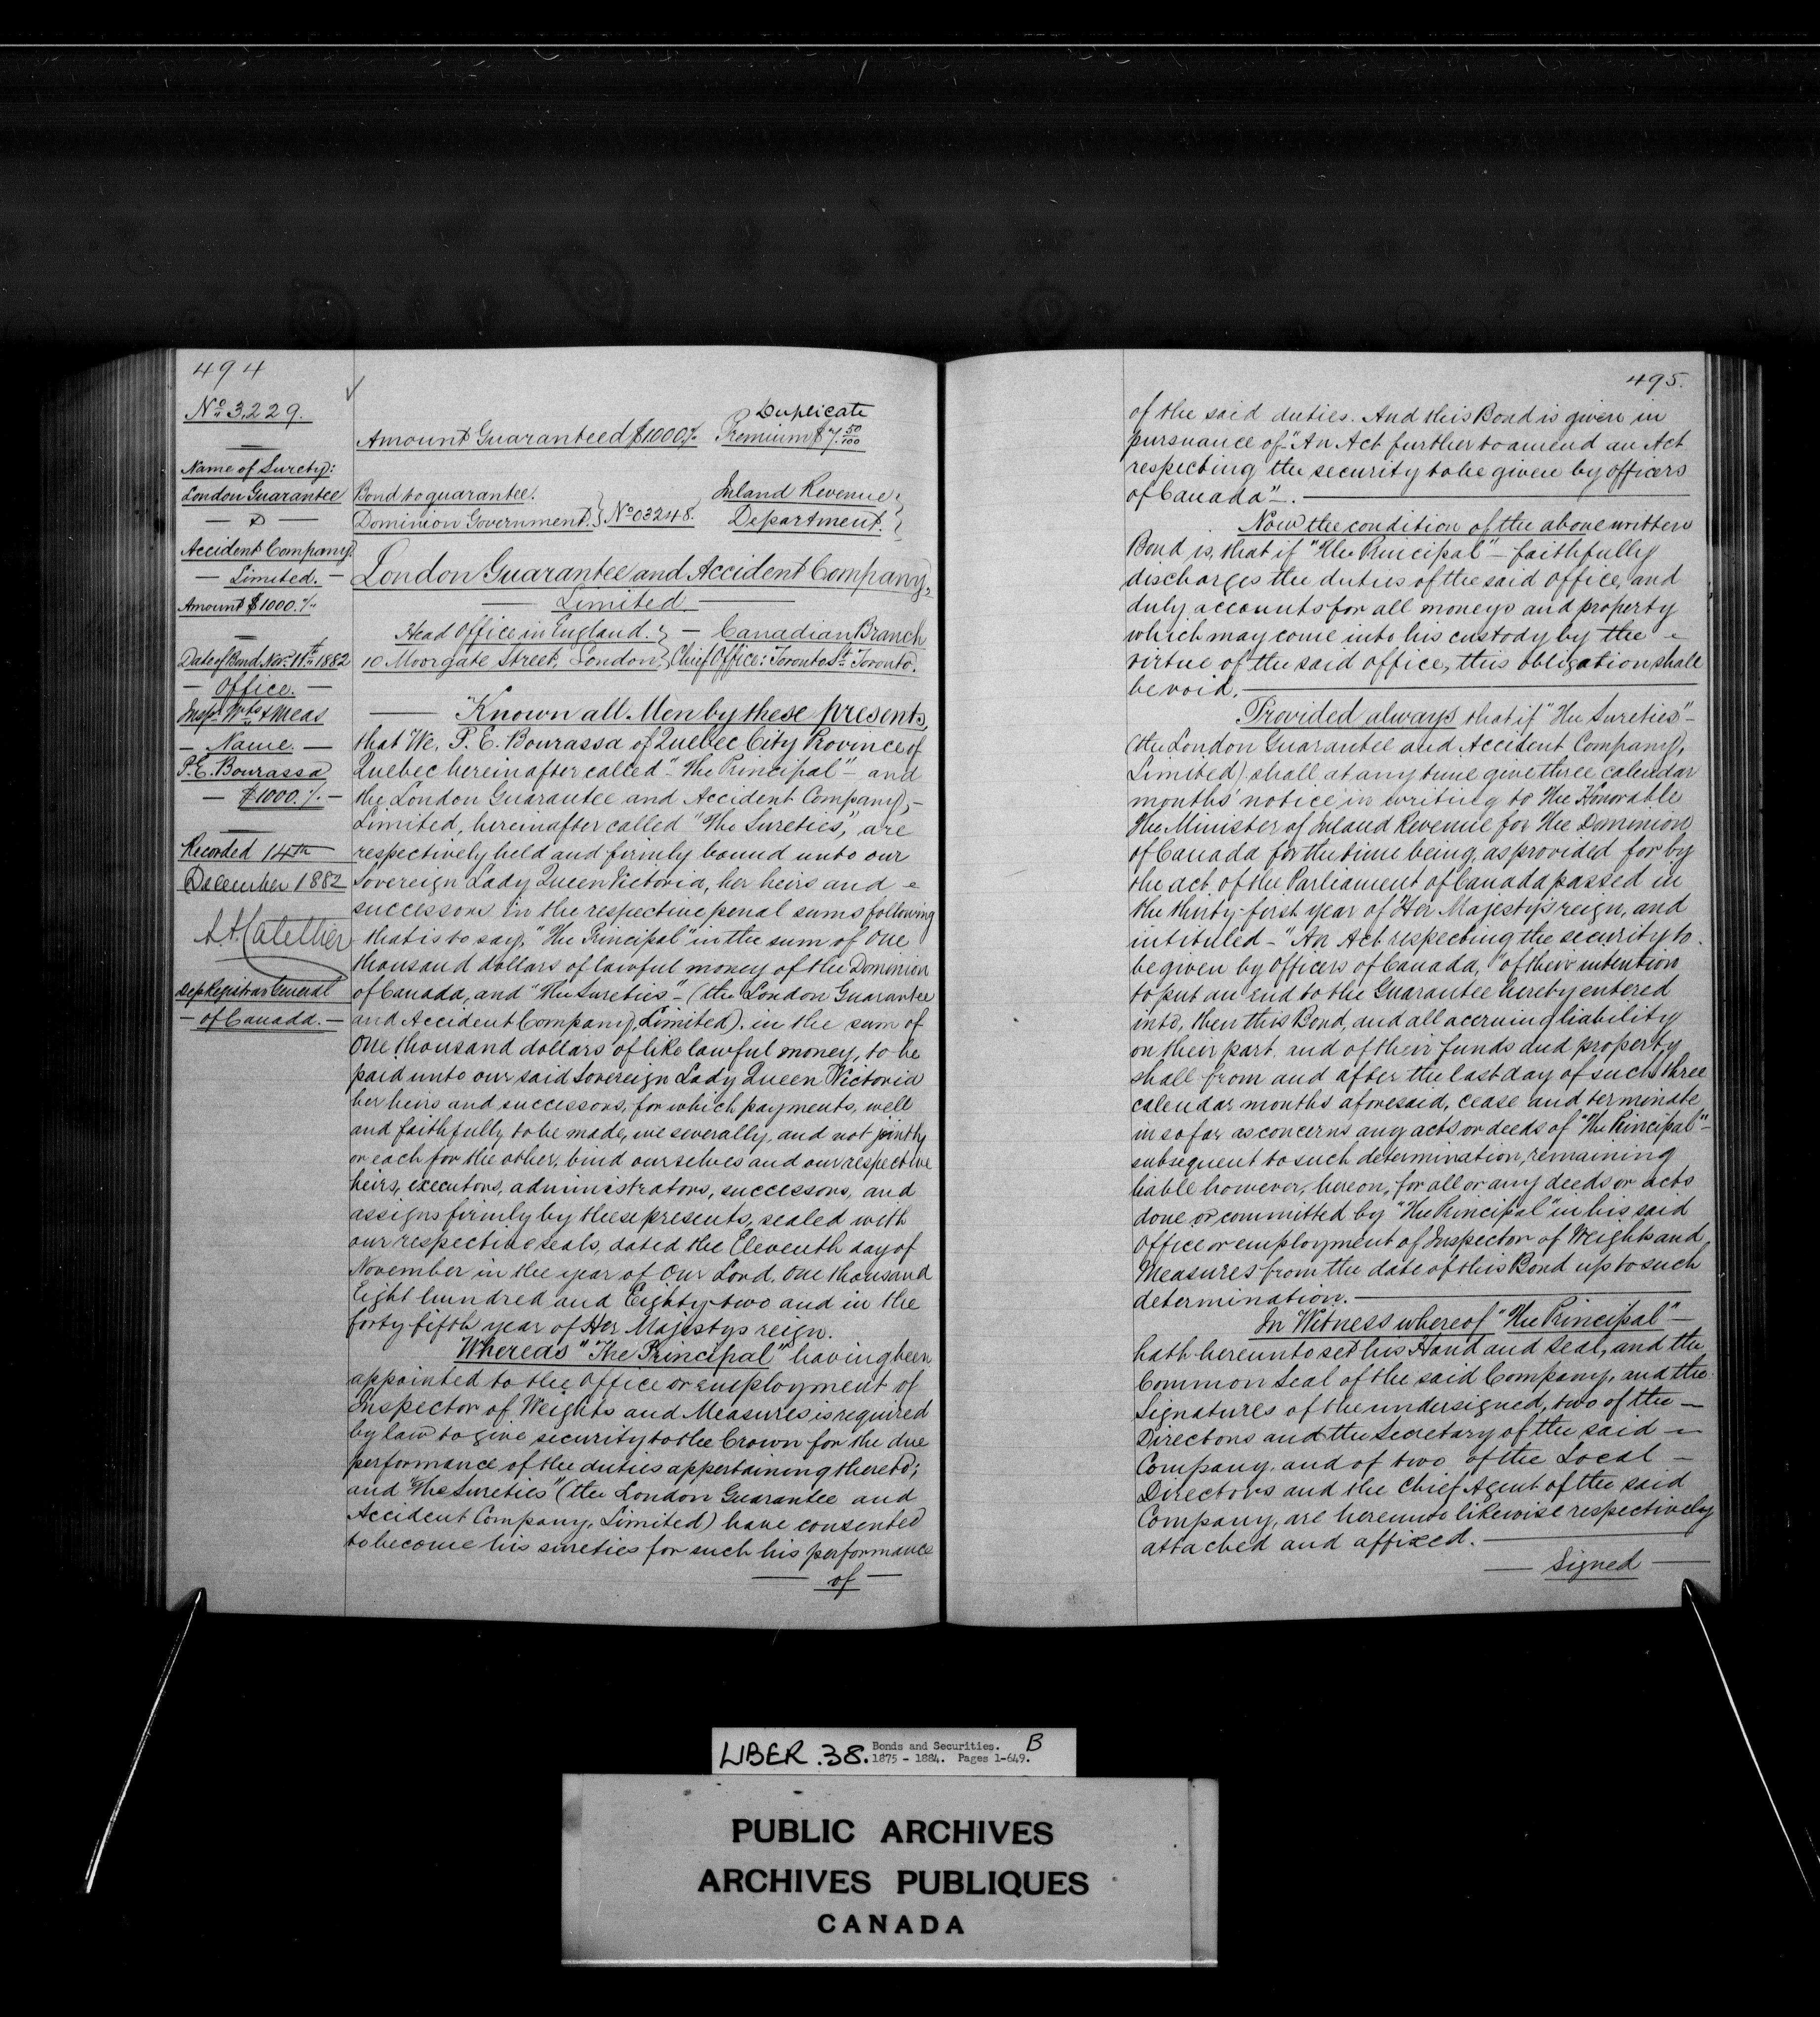 494
No 3,229.
Name of Surety:
London Guarantee
&
Accident Company
— Limited. —
Amount $1000.%
Date of Bond Nov. 11th 1882
— Office. —
Inspr Wts & Meas
— Name. —
P.E. Bourassa
— $1000.%. —
Recorded 14th
December 1882
Dep Registrar General
— of Canada. —
Duplicate
Amount Guaranteed $1000% Premium $7.50/100
Bond to guarantee. } No 03248. Inland Revenue }
Dominion Government. } Department. }
London Guarantee and Accident Company,
— Limited —
Head Office in England. } — Canadian Branch
10 Moorgate Street, London, } Chief Office: Toronto St. Toronto.
— Known all Men by these presents,
that We, P. E. Bourassa of Quebec City Province of
Quebec hereinafter called "The Principal" — and
the London Guarantee and Accident Company, —
Limited, hereinafter called "The Sureties," are
respectively held and firmly bound unto our
Sovereign Lady Queen Victoria, her heirs and
successors in the respective penal sums following
that is to say, "The Principal" in the sum of One
thousand dollars of lawful money of the Dominion
of Canada, and "The Sureties" — (the London Guarantee
and Accident Company, Limited). in the sum of
One thousand dollars of like lawful money, to be
paid unto our said Sovereign Lady Queen Victoria
her heirs and successors, for which payments, well
and faithfully to be made, we severally, and not jointly
or each for the other, bind ourselves and our respective
heirs, executors, administrators, successors, and
assigns firmly by these presents, sealed with
our respective seals, dated the Eleventh day of
November in the year of Our Lord, One thousand
Eight hundred and Eighty-two and in the
forty fifth year of Her Majestys reign.
Whereas "The Principal" having been
appointed to the Office or employment of
Inspector of Weights and Measures is required
by law to give security to the Crown for the due
performance of the duties appertaining thereto;
and "The Sureties" (the London Guarantee and
Accident Company, Limited) have consented
to become his sureties for such his performance
— of —
495.
of the said duties. And this Bond is given in
pursuance of "An Act further to amend an Act
respecting the security to be given by officers
of Canada" —. —
Now the condition of the above written
Bond is, that if "The Principal" — faithfully
discharges the duties of the said office, and
duly accounts for all moneys and property
which may come into his custody by the
virtue of the said office, this obligation shall
be void. —
Provided always that if "The Sureties" —
(the London Guarantee and Accident Company,
Limited) shall at any time give three calendar
months' notice in writing to The Honorable
The Minister of Inland Revenue for The Dominion
of Canada for the time being, as provided for by
the act of the Parliament of Canada passed in
the thirty-first year of Her Majesty's reign, and
intituled — "An Act respecting the security to
be given by Officers of Canada," of their intention
to put an end to the Guarantee hereby entered
into, then this Bond, and all accruing liability
on their part, and of their funds and property
shall from and after the last day of such three
calendar months aforesaid, cease and terminate
in so far as concerns any acts or deeds of "The Principal" —
subsequent to such determination, remaining
liable however, hereon, for all or any deeds or acts
done or committed by "The Principal" in his said
Office or employment of Inspector of Weights and
Measures from the date of this Bond up to such
determination. —
In Witness whereof "The Principal" —
hath hereunto set his Hand and Seal, and the
Common Seal of the said Company, and the
Signatures of the undersigned, two of the —
Directors and the Secretary of the said —
Company, and of two of the Local —
Directors and the Chief Agent of the said
Company, are hereunto likewise respectively
attached and affixed. —
— Signed —
LIBER .38. Bonds and Securities. B
1875 - 1884. Pages 1-649.
PUBLIC ARCHIVES
ARCHIVES PUBLIQUES
CANADA